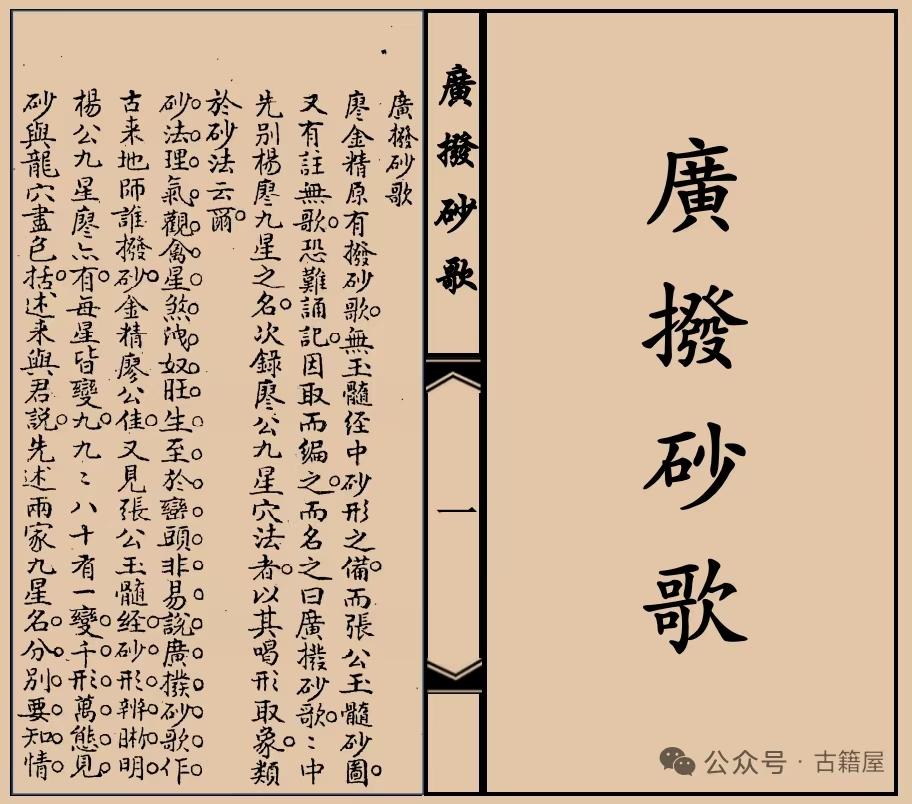 廣撥砂歌
廣撥砂歌
一
廣撥砂歌
廖金精原有撥砂歌。無玉髓经中砂形之備。而張公玉髓砂圖。
又有註無歌。恐難誦記。因取而编之。而名之曰廣撥砂歌。〻中
先别楊廖九星之名。次錄廖公九星穴法者。以其唱形取象。類
於砂法云爾。
砂法理氣觀禽星煞洩奴旺生至於巒頭非易説廣撥砂歌作
古来地師誰撥砂。金精廖公佳。又見張公玉髓经。砂形辨晰明
楊公九星廖亦有。每星皆變九。九〻八十有一變。千形萬態見
砂與龍穴盡包括。述来與君説。先述兩家九星名。分别要知情
公众号·古籍屋